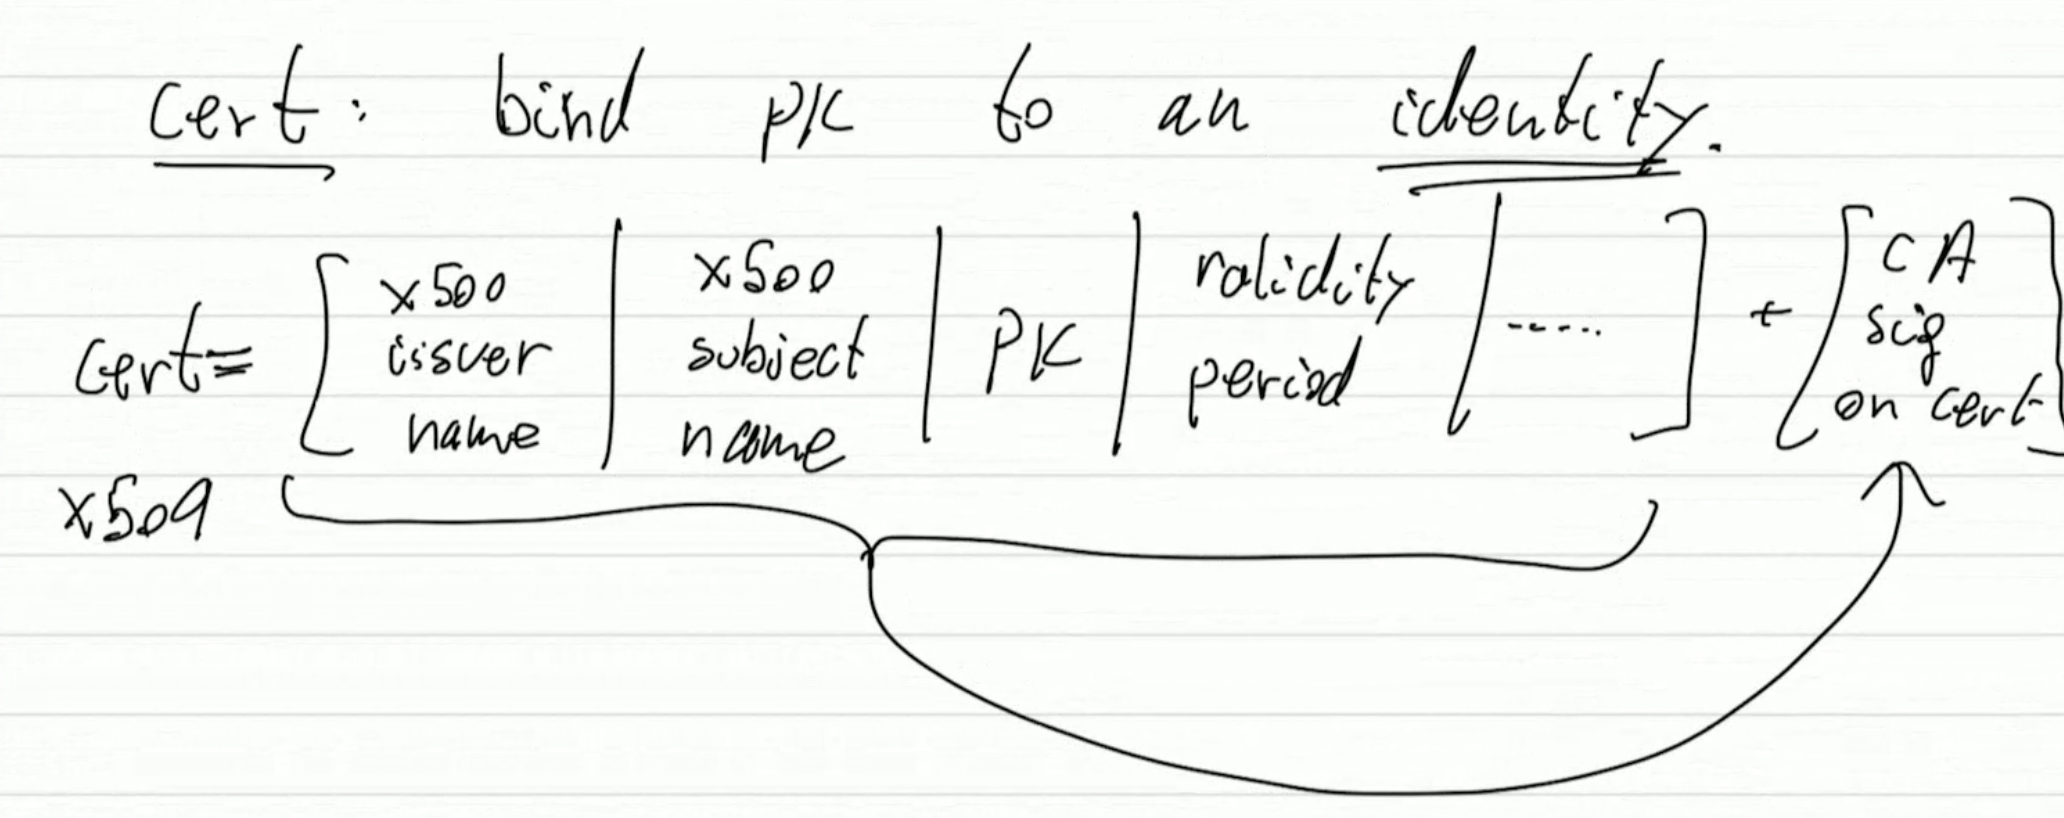 cert: bind PK to an identity.
cert= [ x500 issuer name | x500 subject name | PK | validity period | ----- ] + [ CA sig on cert ]
x509